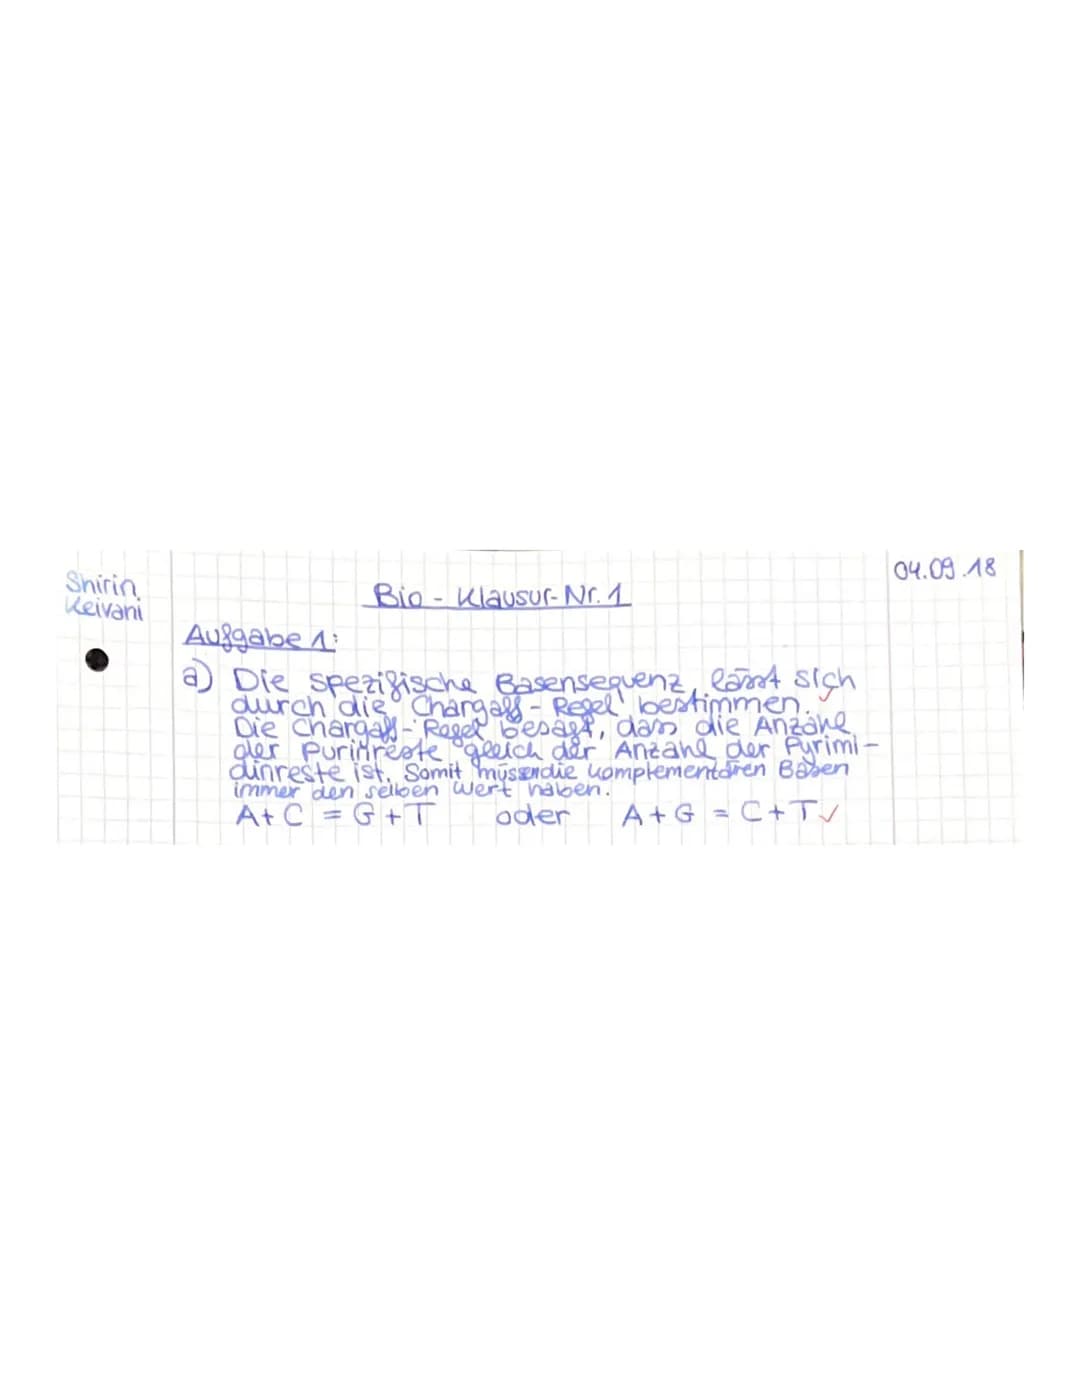 04.09.18
Shirin
Keivani
Bio - Klausur-Nr. 1
Aufgabe 1:
a) Die spezifische Basensequenz, lässt sich
durch die "Chargaff - Regel" bestimmen. ✓
Die Chargaff-Regel besagt, dass die Anzahl
der Purinreste gleich der Anzahl der Pyrimi-
dinreste ist. Somit müssen die komplementären Basen
immer den selben Wert haben.
A+C = G+T oder A+G = C+T ✓